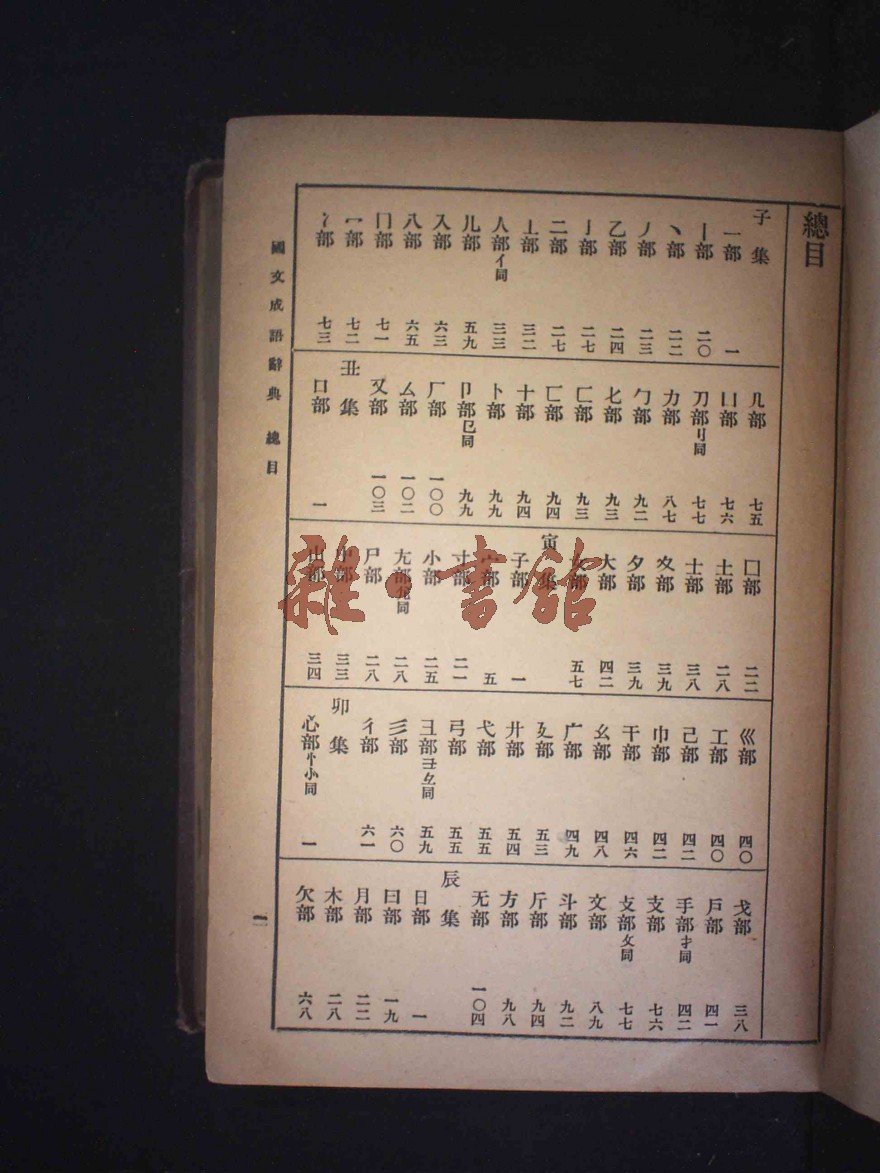 總目
子集
一部 一
丨部 二〇
丶部 二二
丿部 二三
乙部 二四
亅部 二七
二部 二七
亠部 三二
人部亻同 三三
儿部 五九
入部 六三
八部 六五
冂部 七一
冖部 七二
冫部 七三
几部 七五
凵部 七六
刀部刂同 七七
力部 八七
勹部 九二
匕部 九三
匚部 九三
匸部 九四
十部 九四
卜部 九九
卩部㔾同 九九
厂部 一〇〇
厶部 一〇二
又部 一〇三
丑集
口部 一
囗部 二二
土部 二八
士部 三八
夊部 三九
夕部 三九
大部 四二
女部 五七
寅集
子部 一
宀部 五
寸部 二一
小部 二五
尢部尣同 二八
尸部 二八
屮部 三三
山部 三四
巛部 四〇
工部 四〇
己部 四二
巾部 四二
干部 四六
幺部 四八
广部 四九
廴部 五三
廾部 五四
弋部 五五
弓部 五五
彐部彑同 五九
彡部 六〇
彳部 六一
卯集
心部忄㣺同 一
戈部 三八
戶部 四一
手部扌同 四二
支部 七六
攴部攵同 七七
文部 八九
斗部 九二
斤部 九四
方部 九八
无部 一〇四
辰集
日部 一
曰部 一九
月部 二二
木部 二八
欠部 六八
國文成語辭典 總目
一
雜·書館